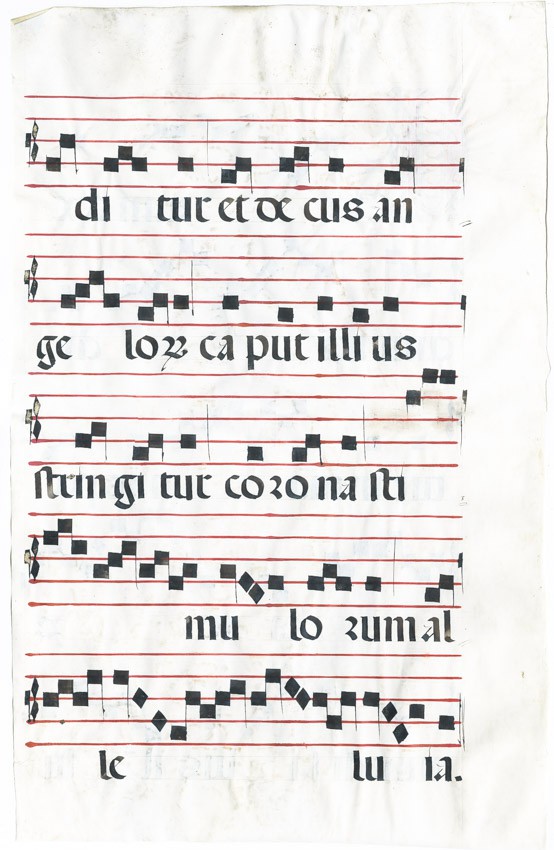 di tur et de cus an
ge loꝝ ca put illi us
strin gi tur co ro na sti
mu lo rum al
le lu ia.